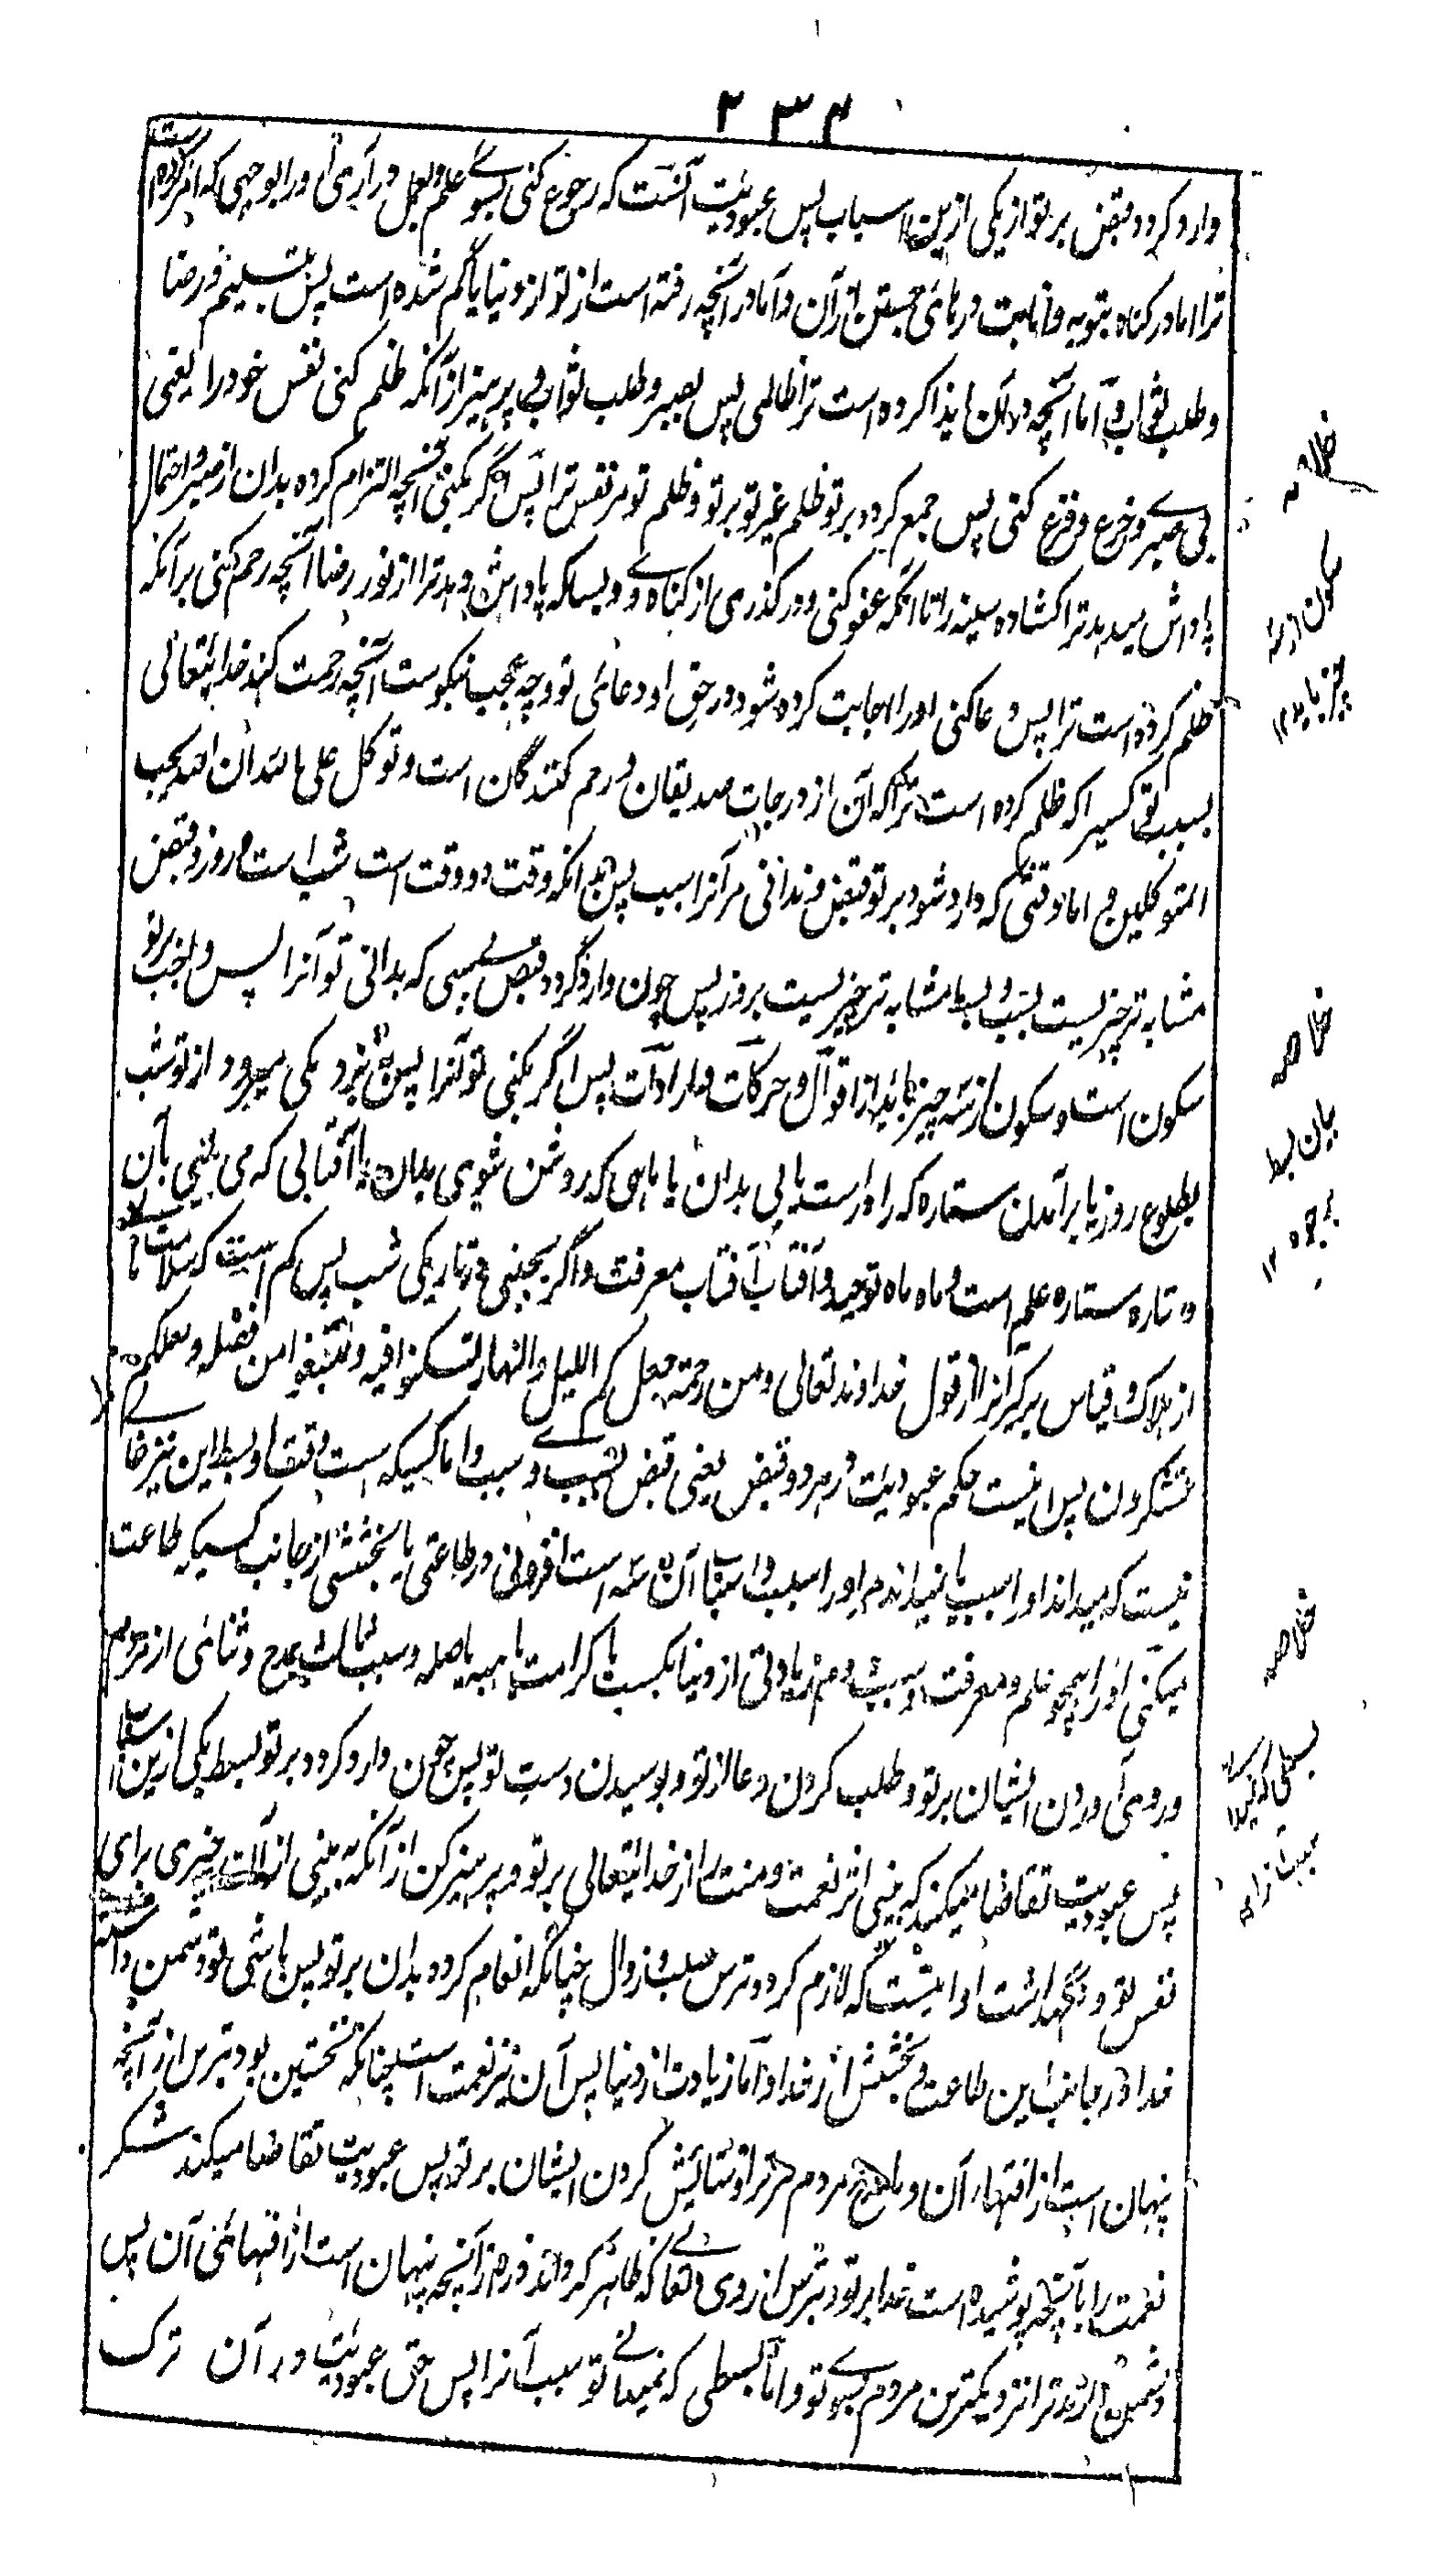 ۲۳۴
وارد گردد قبض بر تو از یکی ازین اسباب پس عبودیت آنست که رجوع کنی بسوی علم و بعمل در آری او را بوجهی که امر کرده است
ترا اما در گناه بتوبه و انابت و رهائی جستن از آن و اما در آنچه رفته است از تو از دنیا یا گم شده است پس بتسلیم و رضا
و طلب ثواب و اما آنچه در آن ایذا کرده است ترا ظالمی پس بصبر و طلب ثواب و پرهیز از آنکه ظلم کنی نفس خود را یعنی
بی صبری و جزع و فزع کنی پس جمع گردد بر تو ظلم غیر تو بر تو و ظلم تو مر نفس ترا پس اگر بکنی آنچه التزام کرده بدان از صبر و احتمال
پاداش میدهد ترا کشاده سینه را تا آنکه عفو کنی و در گذری از گناه وی و بسا که پاداش دهد ترا از نور رضا آنچه رحم کنی بر آنکه
ظلم کرده است ترا پس دعا کنی او را اجابت کرده شود در حق او دعائی تو و چه عجیب نیکوست آنچه رحمت کند خدایتعالی
بسبب تو کسیرا که ظلم کرده است ترا که آن از درجات صدیقان و رحم کنندگان است و توکل علی الله ان الله یحب
المتوکلین و اما وقتی که وارد شود بر تو قبض و ندانی مر آنرا سبب پس بدانکه وقت دو وقت است شب است و روز و قبض
مشابه تر چیزیست بشب و بسط مشابه تر چیزیست بروز پس چون وارد گردد قبض بی سببی که بدانی تو آنرا پس واجب بر تو
سکون است و سکون از سه چیز باید از اقوال و حرکات و ارادات پس اگر بکنی تو آنرا پس بنزدیکی میرود از تو شب
بطلوع روز یا برآمدن ستاره که راه راست یابی بدان یا ماهی که روشن شوی بدان یا آفتابی که می بینی بآن
و ستاره ستاره علم است و ماه ماه توحید و آفتاب آفتاب معرفت و اگر بجنبی در تاریکی شب پس کم است که سلامت مانی
از هلاک و قیاس برگیر آنرا از قول خداوند تعالی و من رحمته جعل لکم اللیل و النهار لتسکنوا فیه و لتبتغوا من فضله و لعلکم
تشکرون پس اینست حکم عبودیت در هر دو قبض یعنی قبض بسبب و بی سبب و اما کسیکه است وقت او بسط این نیز خالی
نیست که میداند او را سبب یا نمیداند مر او را سبب و اسباب آن سه است افزونی در طاعتی یا بخششی از جانب کسیکه طاعت
میکنی او را همچو علم و معرفت و سبب دوم زیادتی از دنیا بکسب یا کرامت یا هبه یا صله و سبب ثالث بمدح و ثنائی از مردم
و روی آوردن ایشان بر تو و طلب کردن دعا از تو و بوسیدن دست تو پس چون وارد گردد بر تو بسط یکی ازین اسباب
پس عبودیت تقاضا میکند که بینی اثر نعمت و منت را از خدایتعالی بر تو و پرهیز کن از آنکه بینی از آن چیزی برای
نفس تو و نگهداشت او اینست که لازم گردد ترس سلب و زوال چنانکه انعام کرده بدان بر تو پس باشی تو دشمن داشته
خدا در جانب این طاعت و بخشش از خدا و اما زیادت از دنیا پس آن نیز نعمت است چنانکه نخستین بود و بترس از آنچه
پنهان است از آفتهای آن و اما مدح مردم مر ترا و ستایش کردن ایشان بر تو پس عبودیت تقاضا میکند شکر
نعمت را بآنچه پوشیده است خدا بر تو و بترس از روی تعالی که ظاهر گرداند ذره از آنچه پنهان است از آفتهائی آن پس
دشمن دارد ترا نزدیکترین مردم بسوی تو و اما بسطی که نمیدانی تو سبب آنرا پس حق عبودیت در آن ترک
خلاصه
سکون از سه
چیز باید ۱۲
خلاصه
بیان بسط
خلاصه